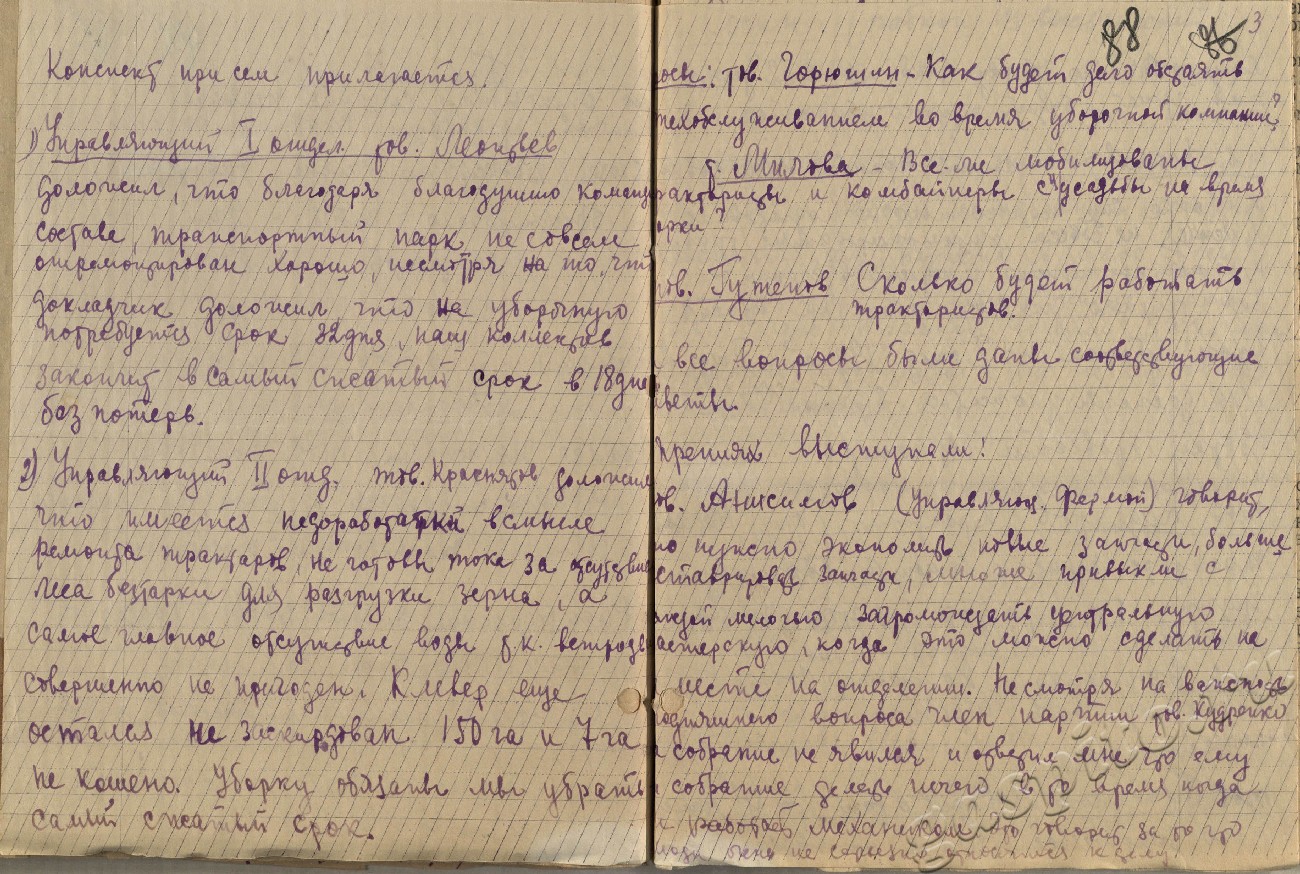 Конспект при сем прилагается.
1) Управляющий I отдел. тов. Леонтьев
доложил, что благодаря благодушию команд
составе, транспортный парк не совсем
отремонтирован хорошо, несмотря на то, что
докладчик доложил что на уборочную
потребуется срок 22 дня, наш коллектив
закончит в самый сжатый срок в 18 дне
без потерь.
2) Управляющий II отд. тов. доложил
что имеется недоработатки в смысле
ремонта тракторов, не готовы тока за отсутствие
леса безтарки для разгрузки зерна, а
самое главное отсутствие воды т.к. ветродв
совершенно не пригоден. Клевер еще
остался не заскирдован 150 га и 7 га
не кошено. Уборку обязаны мы убрать
самый сжатый срок.
88 3
росы: тов. Горюшин - Как будет дело обстоять
техобслуживанием во время уборочной компании?
т. Милова - Все-ли мобилизованы
трактористы и комбайнеры с усадьбы на время
орки?
ов. Гуженов Сколько будет работать
трактористов.
все вопросы были даны соответствующие
веты.
прениях выступали:
ов. Анисимов (управляющ. фермой) говорит,
но нужно экономить новые запчасти, больше
еставрировать запчасти, привыкли с
ждой мелочью загромождать центральную
астерскую, когда это можно сделать на
месте на отделении. Несмотря на важность
годняшнего вопроса член партии тов. Кудрейко
собрание не явился и ответил мне что ему
собрание делать нечего в то время когда
работает механиком это говорит за то что
относится к делу.